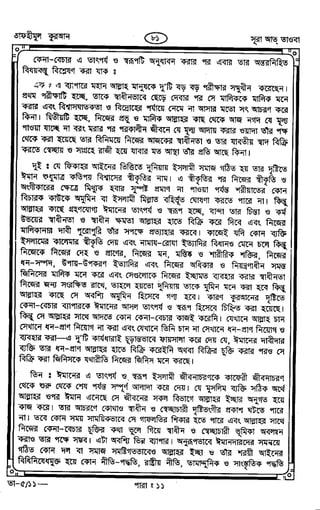 তাফহীমুল কুরআন ৮১ সূরা আত তাওবা
কেনা-বেচার এ তাৎপর্য ও স্বরূপটি অনুধাবন করার পর এবার তার অন্তর্নিহিত
বিষয়বস্তু বিশ্লেষণ করা যাক ঃ
এক ঃ এ ব্যাপারে মহান আল্লাহ মানুষকে দু'টি বড় বড় পরীক্ষার সম্মুখীন করেছেন।
প্রথম পরীক্ষাটি হচ্ছে, তাকে স্বাধীনভাবে ছেড়ে দেবার পর সে মালিককে মালিক মনে
করার এবং বিশ্বাসঘাতকতা ও বিদ্রোহের পর্যায়ে নেমে না আসার মতো সৎ আচরণ করে
কিনা। দ্বিতীয়টি হচ্ছে, নিজের প্রভু ও মালিক আল্লাহর কাছ থেকে আজ নগদ যে মূল্য
পাওয়া যাচ্ছে না বরং মরার পর পরকালীন জীবনে যে মূল্য আদায় করার ওয়াদা তাঁর পক্ষ
থেকে করা হয়েছে তার বিনিময়ে নিজের আজকের স্বাধীনতা ও তার যাবতীয় স্বাদ বিক্রি
করতে স্বেচ্ছায় ও সাগ্রহে রাজী হয়ে যাবার মত আস্থা তাঁর প্রতি আছে কিনা।
দুই ঃ যে ফিকাহর আইনের ভিত্তিতে দুনিয়ায় ইসলামী সমাজ গঠিত হয় তার দৃষ্টিতে
ঈমান শুধুমাত্র কতিপয় বিশ্বাসের স্বীকৃতির নাম। এ স্বীকৃতির পর নিজের স্বীকৃতি ও
অংগীকারের ক্ষেত্রে মিথ্যুক হবার সুস্পষ্ট প্রমাণ না পাওয়া পর্যন্ত শরীয়াতের কোন
বিচারক কাউকে অমুমিন বা ইসলামী মিল্লাত বহির্ভূত ঘোষণা করতে পারে না। কিন্তু
আল্লাহর কাছে গ্রহণযোগ্য ঈমানের তাৎপর্য ও স্বরূপ হচ্ছে, বান্দা তার চিন্তা ও কর্ম
উভয়ের স্বাধীনতা ও স্বাধীন ক্ষমতা আল্লাহর হাতে বিক্রি করে দিবে এবং নিজের
মালিকানার দাবী পুরোপুরি তাঁর সপক্ষে প্রত্যাহার করবে। কাজেই যদি কোন ব্যক্তি
ইসলামের কালেমার স্বীকৃতি দেয় এবং নামায-রোযা ইত্যাদির বিধানও মেনে চলে কিন্তু
নিজেকে নিজের দেহ ও প্রাণের, নিজের মন, মস্তিষ্ক ও শারীরিক শক্তির, নিজের
ধন-সম্পদ, উপায়-উপকরণ ইত্যাদির এবং নিজের অধিকার ও নিয়ন্ত্রণাধীন সমস্ত
জিনিসের মালিক মনে করে এবং সেগুলোকে নিজের ইচ্ছামত ব্যবহার করার স্বাধীনতা
নিজের জন্য সংরক্ষিত রাখে, তাহলে হয়তো দুনিয়ায় তাকে মুমিন মনে করা হবে কিন্তু
আল্লাহর কাছে সে অবশ্যি অমুমিন হিসেবে গণ্য হবে। কারণ কুরআনের দৃষ্টিতে
কেনা-বেচার ব্যাপারকে ঈমানের আসল তাৎপর্য ও স্বরূপ হিসেবে চিহ্নিত করা হয়েছে।
কিন্তু সে আল্লাহর সাথে আদতে কোন কেনা-বেচার কাজই করেনি। যেখানে আল্লাহ চান
সেখানে ধন-প্রাণ নিয়োগ না করা এবং যেখানে তিনি চান না সেখানে ধন-প্রাণ নিয়োগ ও
ব্যবহার করা—এ দু'টি কার্যধারাই চূড়ান্তভাবে ফায়সালা করে দেয় যে, ঈমানের দাবীদার
ব্যক্তি তার ধন-প্রাণ আল্লাহর হাতে বিক্রি করেইনি অথবা বিক্রির চুক্তি করার পরও সে
বিক্রি করা জিনিসকে যথারীতি নিজের জিনিস মনে করছে।
তিন ঃ ঈমানের এ তাৎপর্য ও স্বরূপ ইসলামী জীবনাচরণকে কাফেরী জীবনাচরণ
থেকে শুরু থেকে শেষ পর্যন্ত সম্পূর্ণ আলাদা করে দেয়। যে মুসলিম ব্যক্তি সঠিক অর্থে
আল্লাহর ওপর ঈমান এনেছে সে জীবনের সকল বিভাগে আল্লাহর ইচ্ছার অনুগত হয়ে
কাজ করে। তার আচরণে কোথাও স্বাধীন ও স্বেচ্ছাচারী দৃষ্টিভংগীর প্রকাশ ঘটতে পারে
না। তবে কোন সময় সাময়িকভাবে সে গাফলতির শিকার হতে পারে এবং আল্লাহর সাথে
নিজের কেনা-বেচার চুক্তির কথা ভুলে গিয়ে স্বাধীন ও স্বেচ্ছাচারী ভূমিকা অবলম্বন
করাও তার পক্ষে সম্ভব। এটা অবশ্যি ভিন্ন ব্যাপার। অনুরূপভাবে ঈমানদারদের সমন্বয়ে
গঠিত কোন দল বা সমাজ সমষ্টিগতভাবেও আল্লাহর ইচ্ছা ও তাঁর শরয়ী আইনের
বিধিনিষেধমুক্ত হয়ে কোন নীতি-পদ্ধতি, রাষ্ট্রীয় নীতি, তামাদ্দুনিক ও সাংস্কৃতিক পদ্ধতি
তা-৫/১১— পারা ঃ ১১